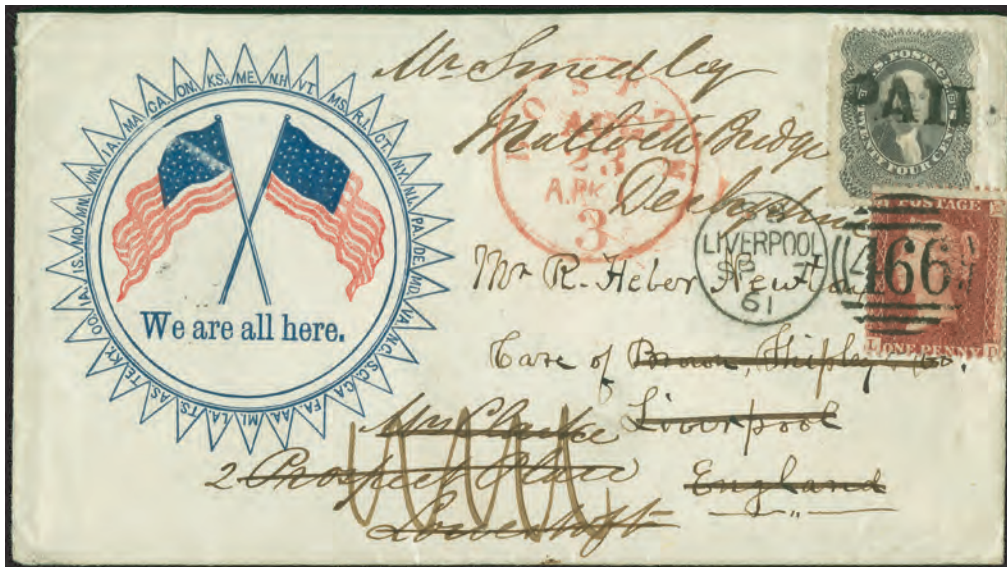 ON. KS. ME. N.H. VT. MS. R.I. CT. N.Y. N.J. PA. DE. MD. VA. N.C. S.C. GA. FA. AA. MI. LA. TS. AS. TE. KY. OO. IA. IS. MO. MN. WN. IA. MA. CA.
We are all here.
Mr Smedley
Matlock Bridge
Derbyshire
BOSTON
23
3
U.S. POSTAGE
TWENTY FOUR CENTS
PAID
LIVERPOOL
SP 7
61
466
POSTAGE
L ONE PENNY P
Mr R. Heber Newton
Care of Brown, Shipley & Co.
Liverpool
England
Mrs Clarke
2 Prospect Place
Lowestoft